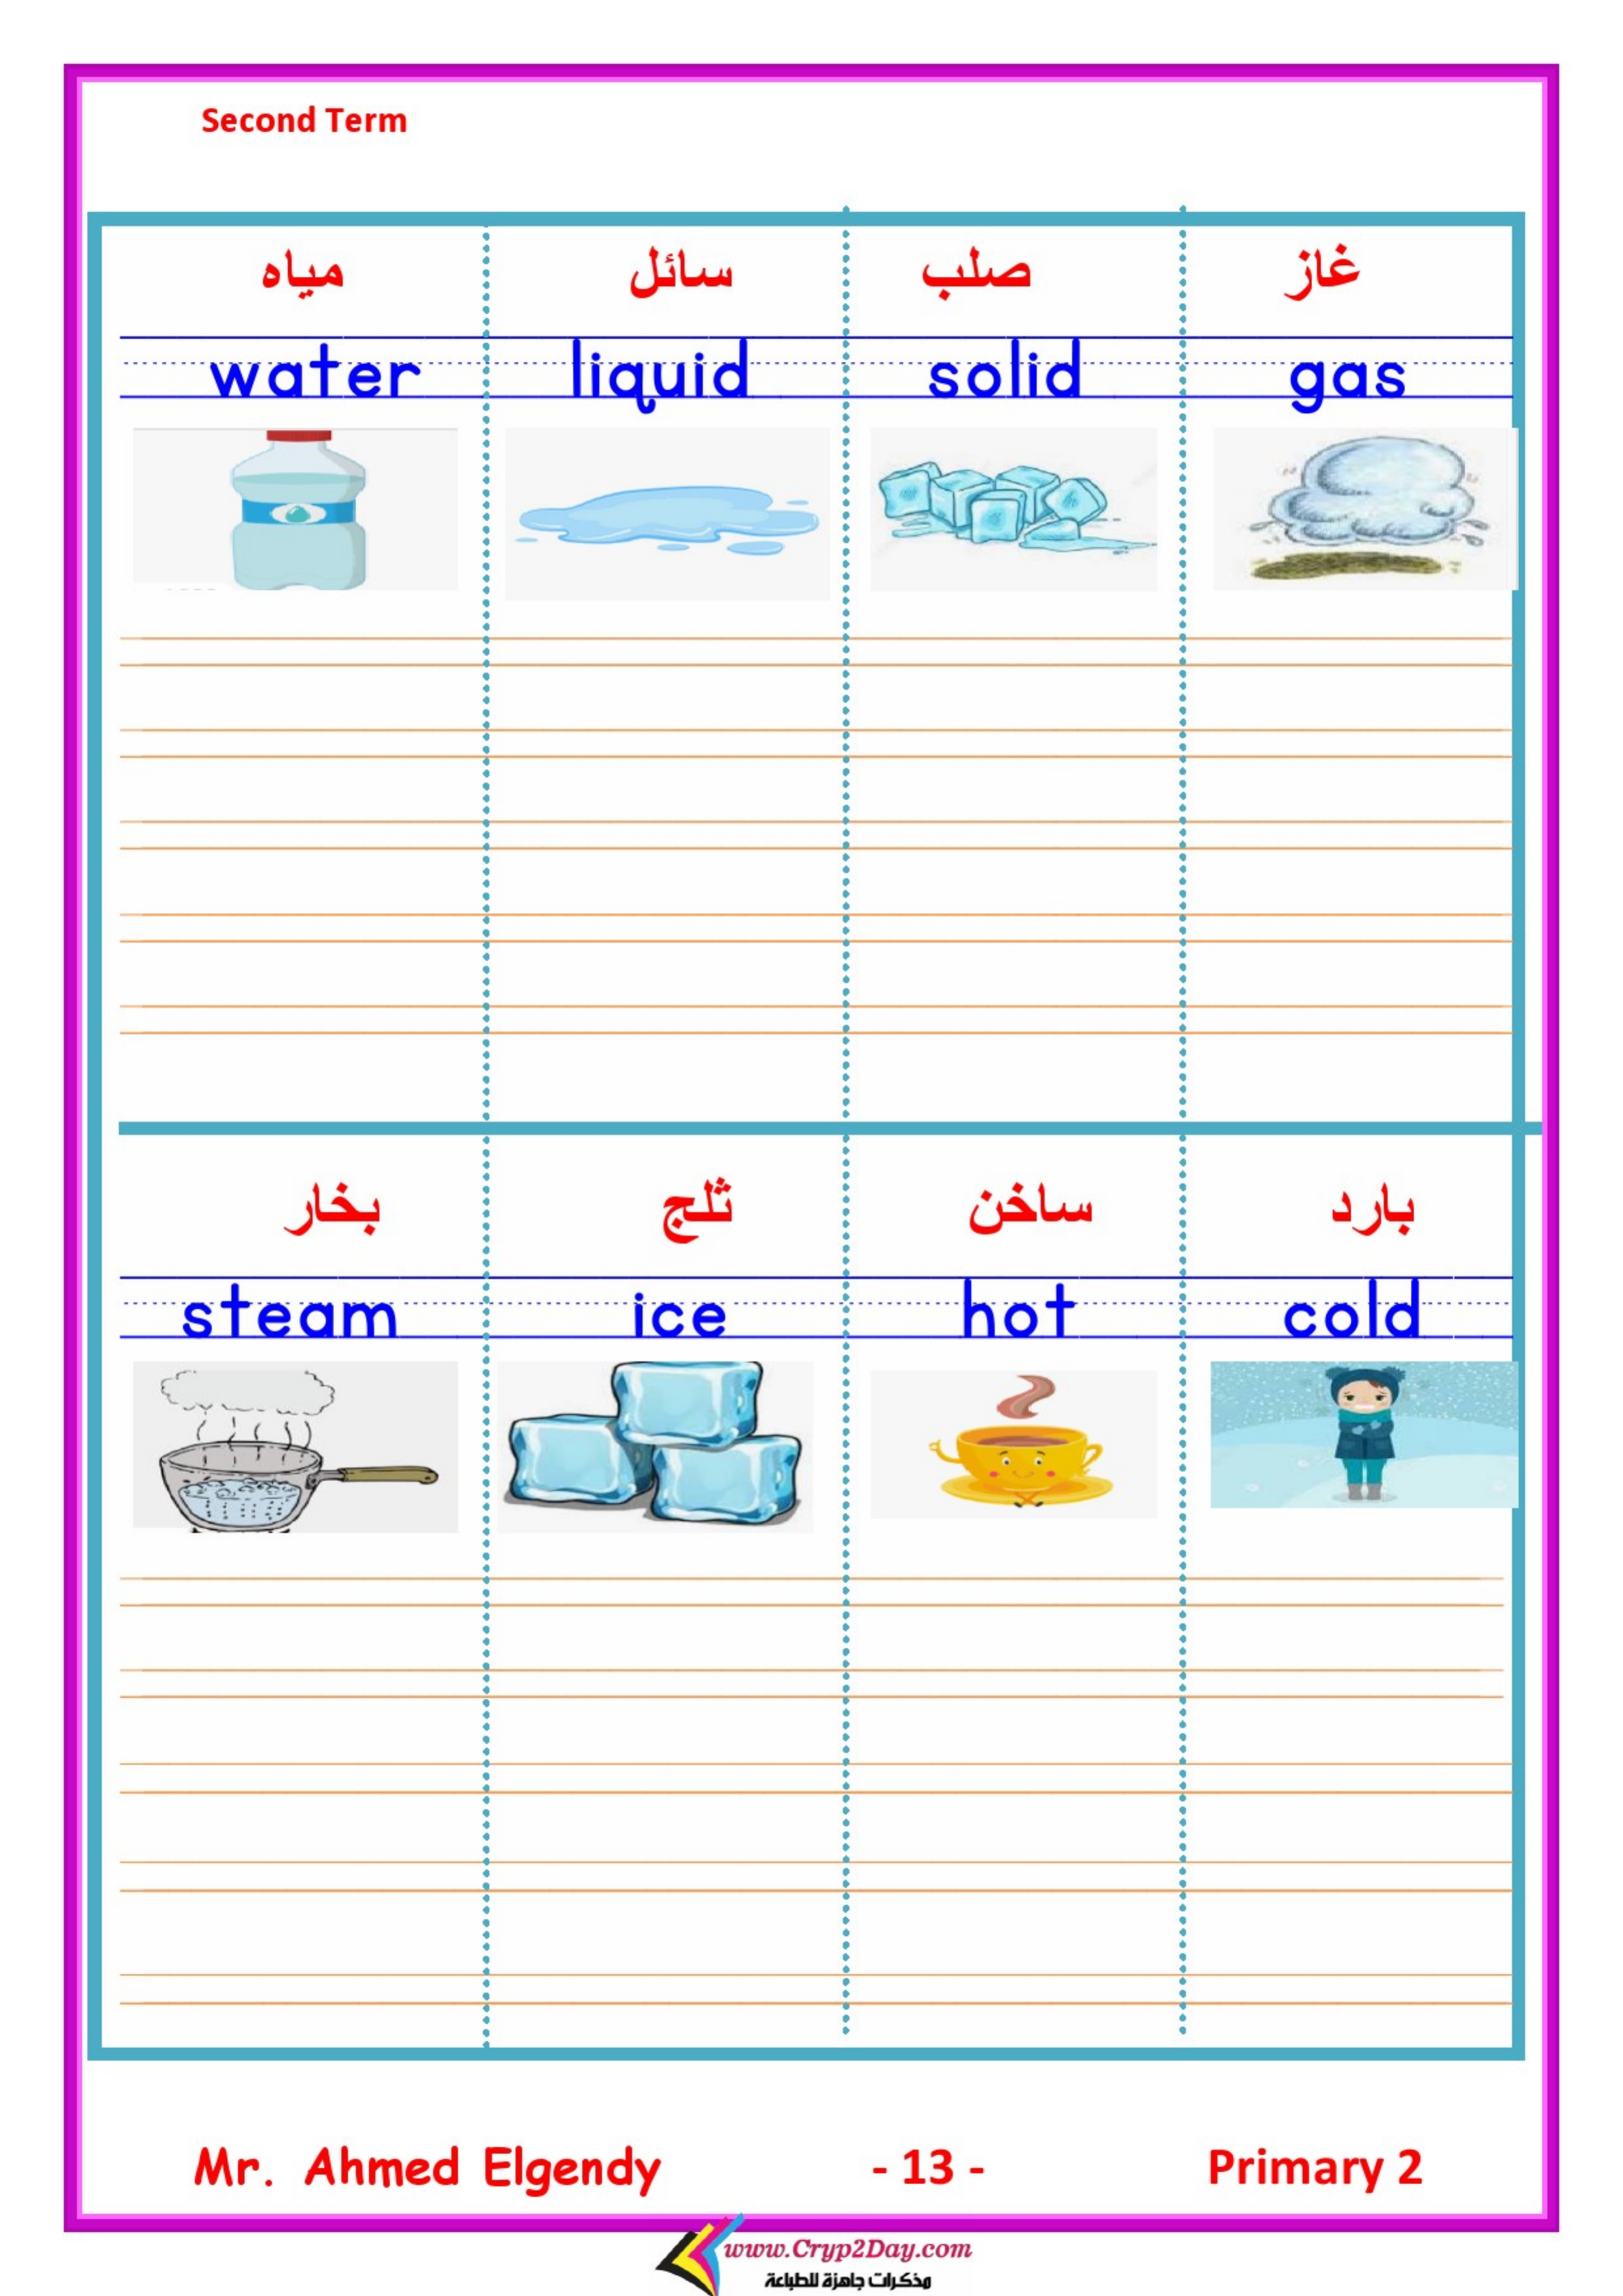 Second Term
مياه سائل صلب غاز
water liquid solid gas
بخار ثلج ساخن بارد
steam ice hot cold
Mr. Ahmed Elgendy - 13 - Primary 2
www.Cryp2Day.com
مذكرات جاهزة للطباعة